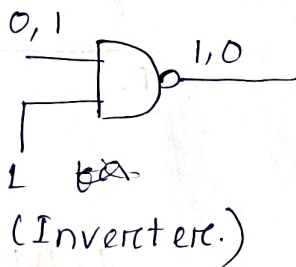 0, 1
1, 0
1
(Inverter.)